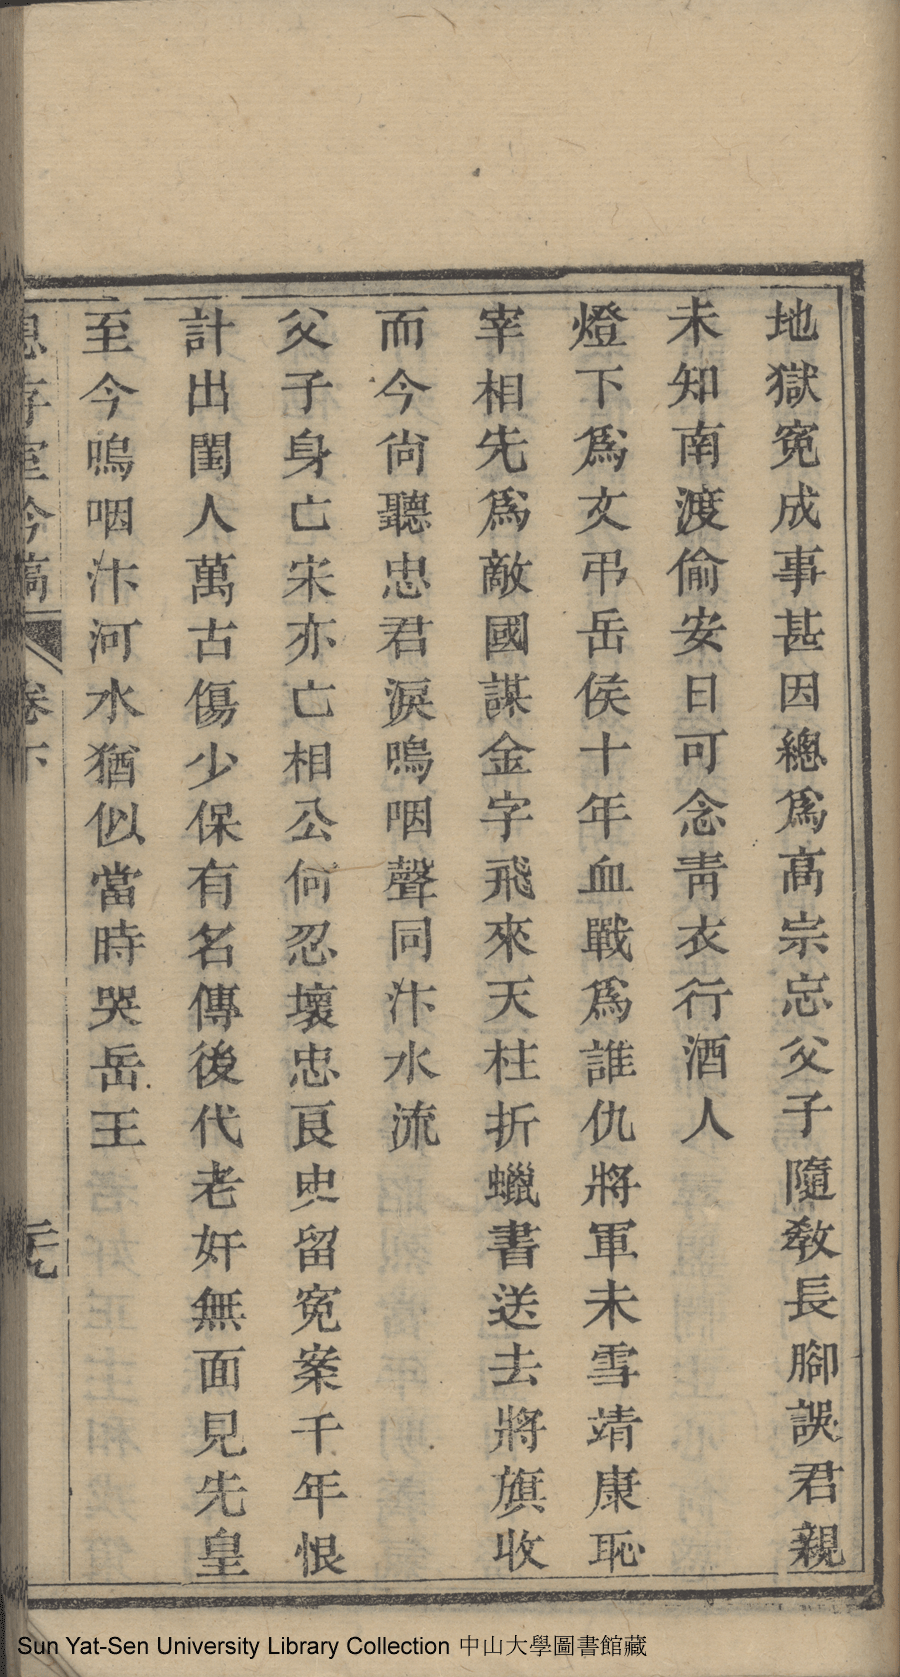 地獄冤成事甚因總爲高宗忘父子隨敎長腳誤君親
未知南渡偷安日可念靑衣行酒人
燈下爲文弔岳侯十年血戰爲誰仇將軍未雪靖康恥
宰相先爲敵國謀金字飛來天柱折蠟書送去將旗收
而今尙聽忠君淚嗚咽聲同汴水流
父子身亡宋亦亡相公何忍壞忠良史留冤案千年恨
計出閨人萬古傷少保有名傳後代老奸無面見先皇
至今嗚咽汴河水猶似當時哭岳王
卷下
Sun Yat-Sen University Library Collection 中山大學圖書館藏